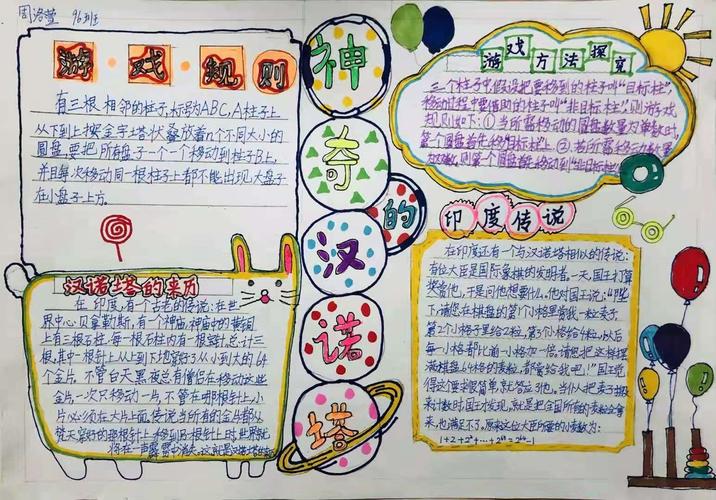 周洛莹 96班
游戏规则
有三根相邻的柱子,标号为ABC,A柱子上
从下到上按金字塔状叠放着n个不同大小的
圆盘,要把所有盘子一个一个移动到柱子B上,
并且每次移动同一根柱子上都不能出现大盘子
在小盘子上方。
汉诺塔的来历
在印度,有个古老的传说:在世
界中心贝拿勒斯,有个神庙,神庙中的黄铜
上有三根石柱。每一根石柱内有一根针,总计三
根,其中一根针上从上到下地穿了从小到大的64
个金片,不管白天黑夜总有僧侣在移动这些
金片,一次只移动一片,不管在哪根针上,小
片必须在大片上面,传说当所有的金片都从
梵天穿好的那根针上移到B根针上时世界就
将在一声霹雳中消失,这就是汉诺塔
神
奇
的
汉
诺
塔
游戏方法探究
三个柱子中假设把要移到的柱子叫“目标柱”,
移动过程中要借助的柱子叫“非目标柱”,则游戏
规则如下:①当所需移动的圆盘数量为单数时,
第一个圆盘首先移到目标柱上。②当所需移动数量
为双数,则第一个圆盘先移动到非目标柱
印度传说
在印度还有一个与汉诺塔相似的传说:
有位大臣是国际象棋的发明者,一天,国王打算
奖赏他,于是问他想要什么。他对国王说:“陛
下,请您在棋盘的第1个小格里赏我一粒麦子,
第2个小格子里给2粒,第3个小格给4粒,以后
每一小格都比前一小格加一倍。请您把这样摆
满棋盘64格的麦粒,都赏给我吧!”国王觉
得这个要求很简单,就答应了他。当人把麦子扛
来计数时,国王才发现,就是把全国所有的麦粒全拿
来,也满足不了,原来这位大臣所要的小麦数为:
1+2+2²+…+2⁶³=2⁶⁴-1